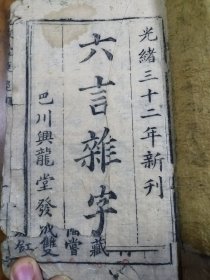 光緒三十二年新刊
六言雜字
藏
巴川興龍堂發